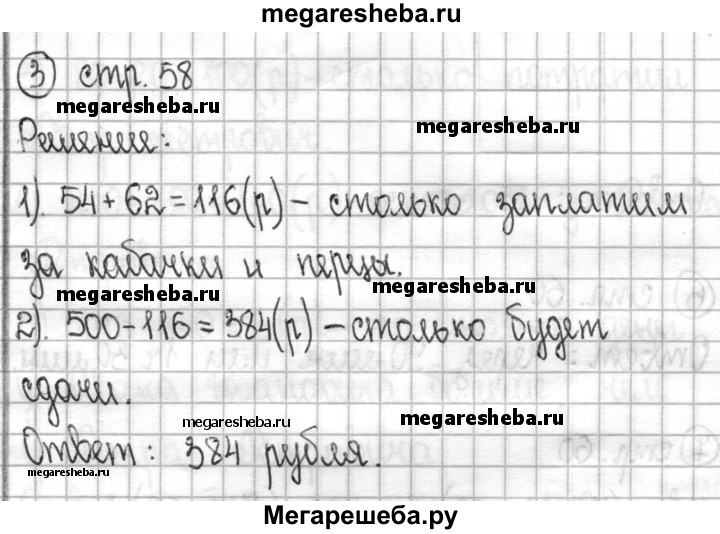 megaresheba.ru
3 стр. 58
megaresheba.ru
megaresheba.ru
Решение:
1). 54+62=116(р) – столько заплатим
за кабачки и перцы.
megaresheba.ru
megaresheba.ru
2). 500-116=384(р) – столько будет
сдачи.
megaresheba.ru
megaresheba.ru
Ответ: 384 рубля.
megaresheba.ru
Мегарешеба.ру